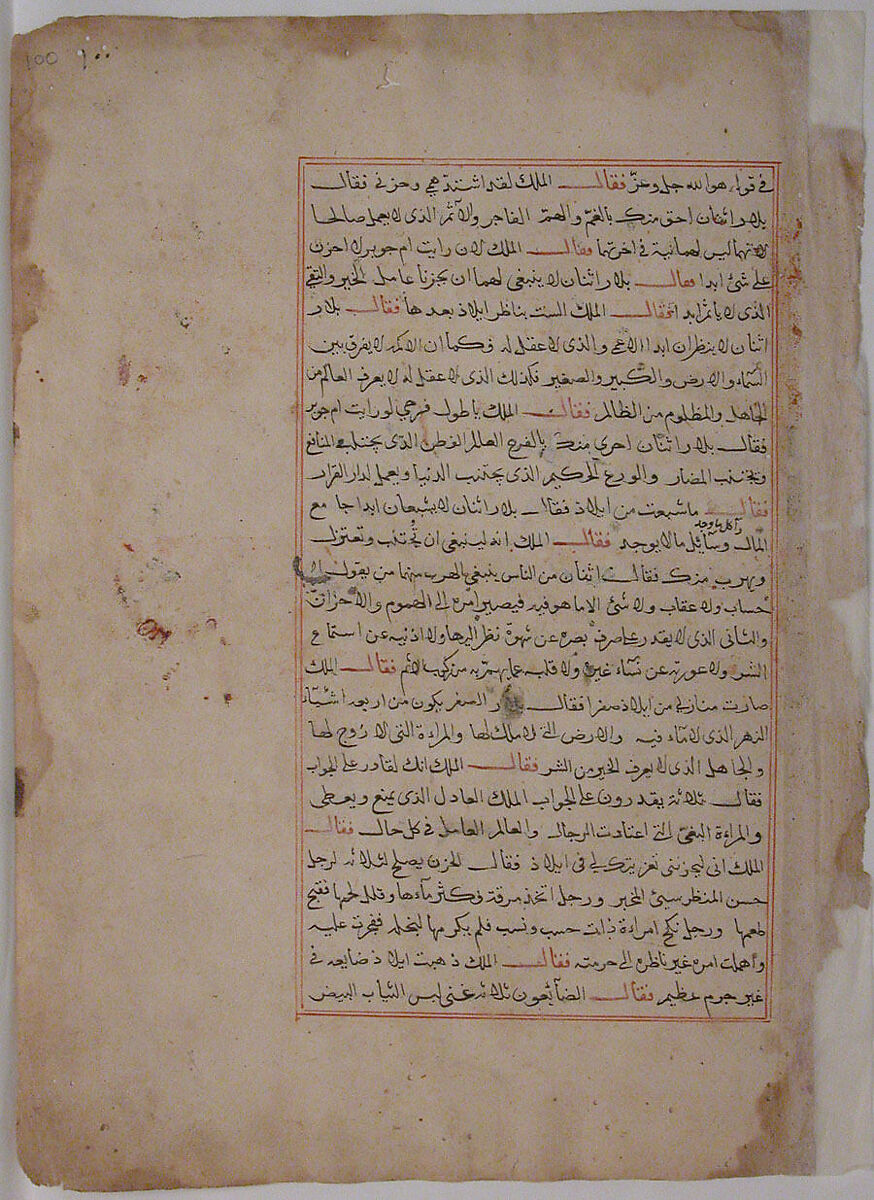 100 ١٠٠
في قوله هو الله جل وعز فقال الملك لقد اشتد همي وحزني فقال
بلار اثنان احق منك بالغم والهم الفاجر والآثم الذي لا يعمل صالحا
لانهما ليس لهما نية في اخرتهما فقال الملك لان رايت ام جوبر لا احزن
على شئ ابدا فقال بلار اثنان لا ينبغي لهما ان يحزنا عامل الخير والتقي
الذي لا ياثم ابدا فقال الملك الست بناظر ايلاذ بعدها فقال بلار
اثنان لا ينظران ابدا الاعمى والذي لا عقل له وكما ان الاكمه لا يفرق بين
السماء والارض والكبير والصغير فكذلك الذي لا عقل له لا يعرف العالم من
الجاهل والمظلوم من الظالم فقال الملك يا طول فرحي لو رايت ام جوبر
فقال بلار اثنان احرى منك بالفرح العالم الفطن الذي يجتلب المنافع
ويجتنب المضار والورع الحكيم الذي يجتنب الدنيا ويعمل لدار القرار
فقال ما شبعت من ايلاذ فقال بلار اثنان لا يشبعان ابدا جامع
المال وسائل ما لا يوجد وآكل ما وجد فقال الملك انه لينبغي ان تجتنب وتعتزل
ويهرب منك فقال اثنان من الناس ينبغي الهرب منهما من يقول لا
حساب ولا عقاب ولا شئ الا ما هو فيه فيصير امره الى الهموم والاحزان
والثاني الذي لا يقدر على صرف بصره عن شهوة نظر اليها ولا اذنيه عن استماع
الشر ولا عورته عن نساء غيره ولا قلبه عما يهم به من ركوب الاثم فقال الملك
صارت منازلي من ايلاذ صفرا فقال بلار الصفر يكون من اربعة اشياء
النهر الذي لا ماء فيه والارض التي لا ملك لها والمراءة التي لا زوج لها
والجاهل الذي لا يعرف الخير من الشر فقال الملك انك لقادر على الجواب
فقال ثلاثة يقدرون على الجواب الملك العادل الذي يمنع ويعطي
والمراءة البغي التي اعتادت الرجال والعالم العامل في كل حال فقال
الملك اني ليحزنني تعزيتك لي في ايلاذ فقال الحزن يصلح لثلاثة لرجل
حسن المنظر سيئ المخبر ورجل اتخذ مرقة فكثر مآءها وقلل لحمها فقبح
طعمها ورجل نكح امراءة ذات حسب ونسب فلم يكرمها لبخله ففجرت عليه
وأهملت امره غير ناظرة الى حرمته فقال الملك ذهبت ايلاذ ضايعة في
غير جرم عظيم فقال الضآئعون ثلاثة غنى لبس الثياب البيض